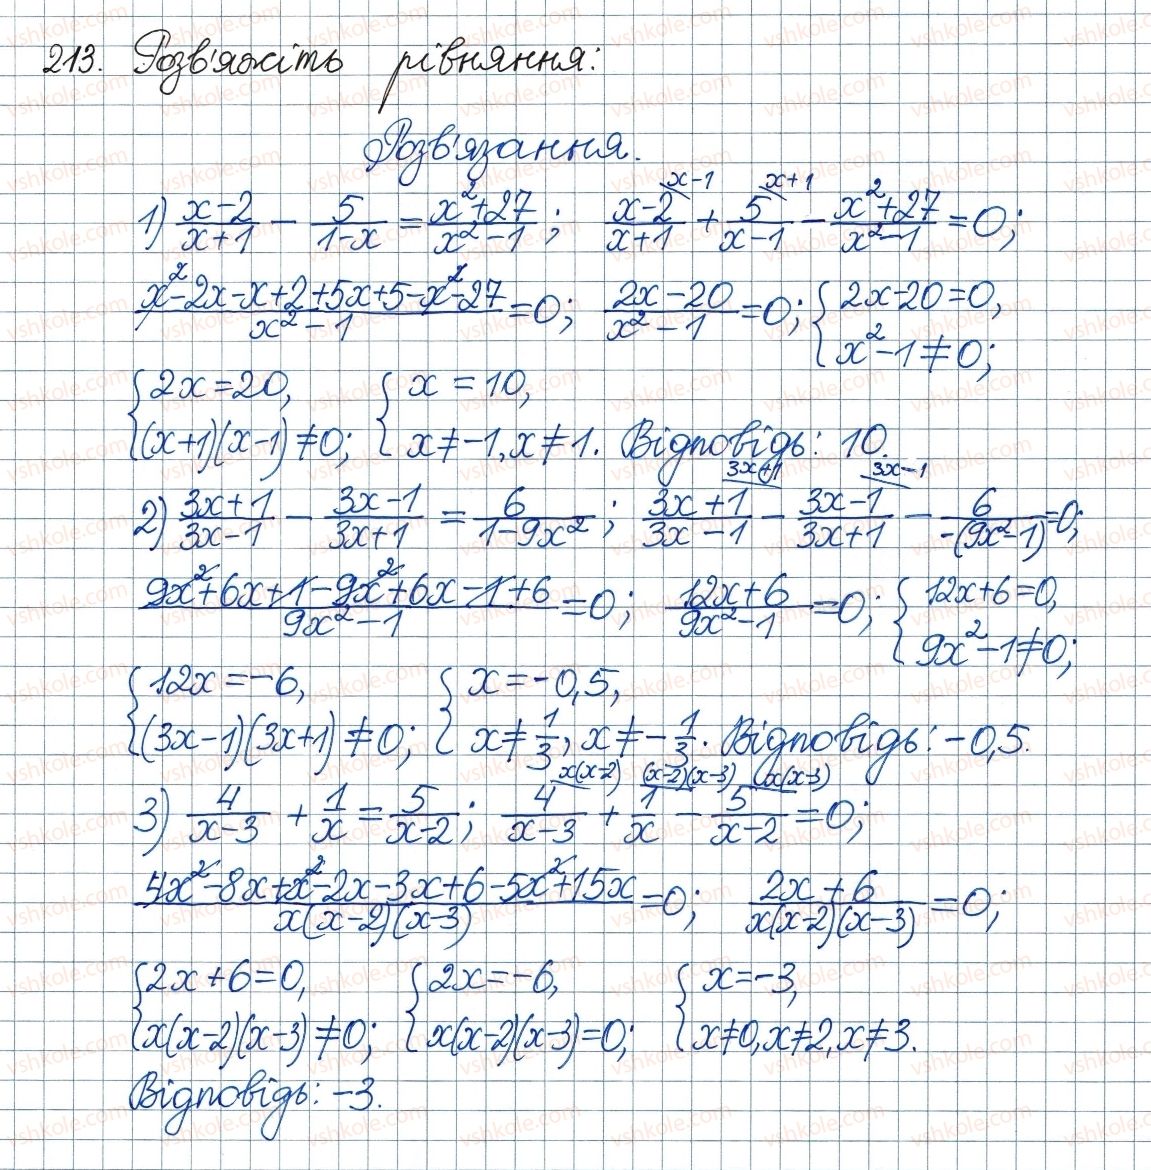 213. Розв'яжіть рівняння:
Розв'язання.
x-1 x+1
1) (x-2)/(x+1) - 5/(1-x) = (x²+27)/(x²-1); (x-2)/(x+1) + 5/(x-1) - (x²+27)/(x²-1) = 0;
(x²-2x-x+2+5x+5-x²-27)/(x²-1) = 0; (2x-20)/(x²-1) = 0; { 2x-20=0, x²-1≠0;
{ 2x=20, (x+1)(x-1)≠0; { x=10, x≠-1, x≠1. Відповідь: 10.
3x+1 3x-1
2) (3x+1)/(3x-1) - (3x-1)/(3x+1) = 6/(1-9x²); (3x+1)/(3x-1) - (3x-1)/(3x+1) - 6/(-(9x²-1)) = 0;
(9x²+6x+1-9x²+6x-1+6)/(9x²-1) = 0; (12x+6)/(9x²-1) = 0; { 12x+6=0, 9x²-1≠0;
{ 12x=-6, (3x-1)(3x+1)≠0; { x=-0,5, x≠1/3, x≠-1/3. Відповідь: -0,5.
x(x-2) (x-2)(x-3) x(x-3)
3) 4/(x-3) + 1/x = 5/(x-2); 4/(x-3) + 1/x - 5/(x-2) = 0;
(4x²-8x+x²-2x-3x+6-5x²+15x)/(x(x-2)(x-3)) = 0; (2x+6)/(x(x-2)(x-3)) = 0;
{ 2x+6=0, x(x-2)(x-3)≠0; { 2x=-6, x(x-2)(x-3)=0; { x=-3, x≠0, x≠2, x≠3.
Відповідь: -3.